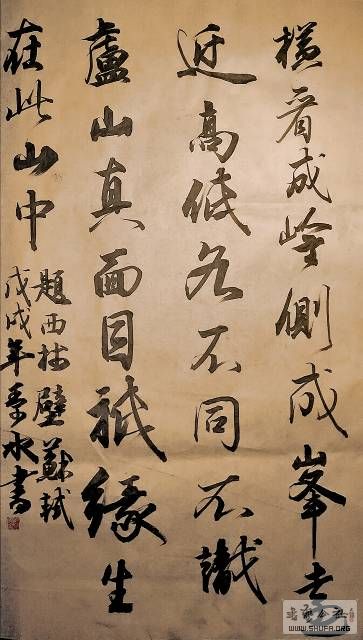 橫看成嶺側成峯遠
近高低各不同不識
盧山真面目祇緣生
在此山中
題西林壁 蘇軾
戊戌年水書
WWW.SHUFA.ORG